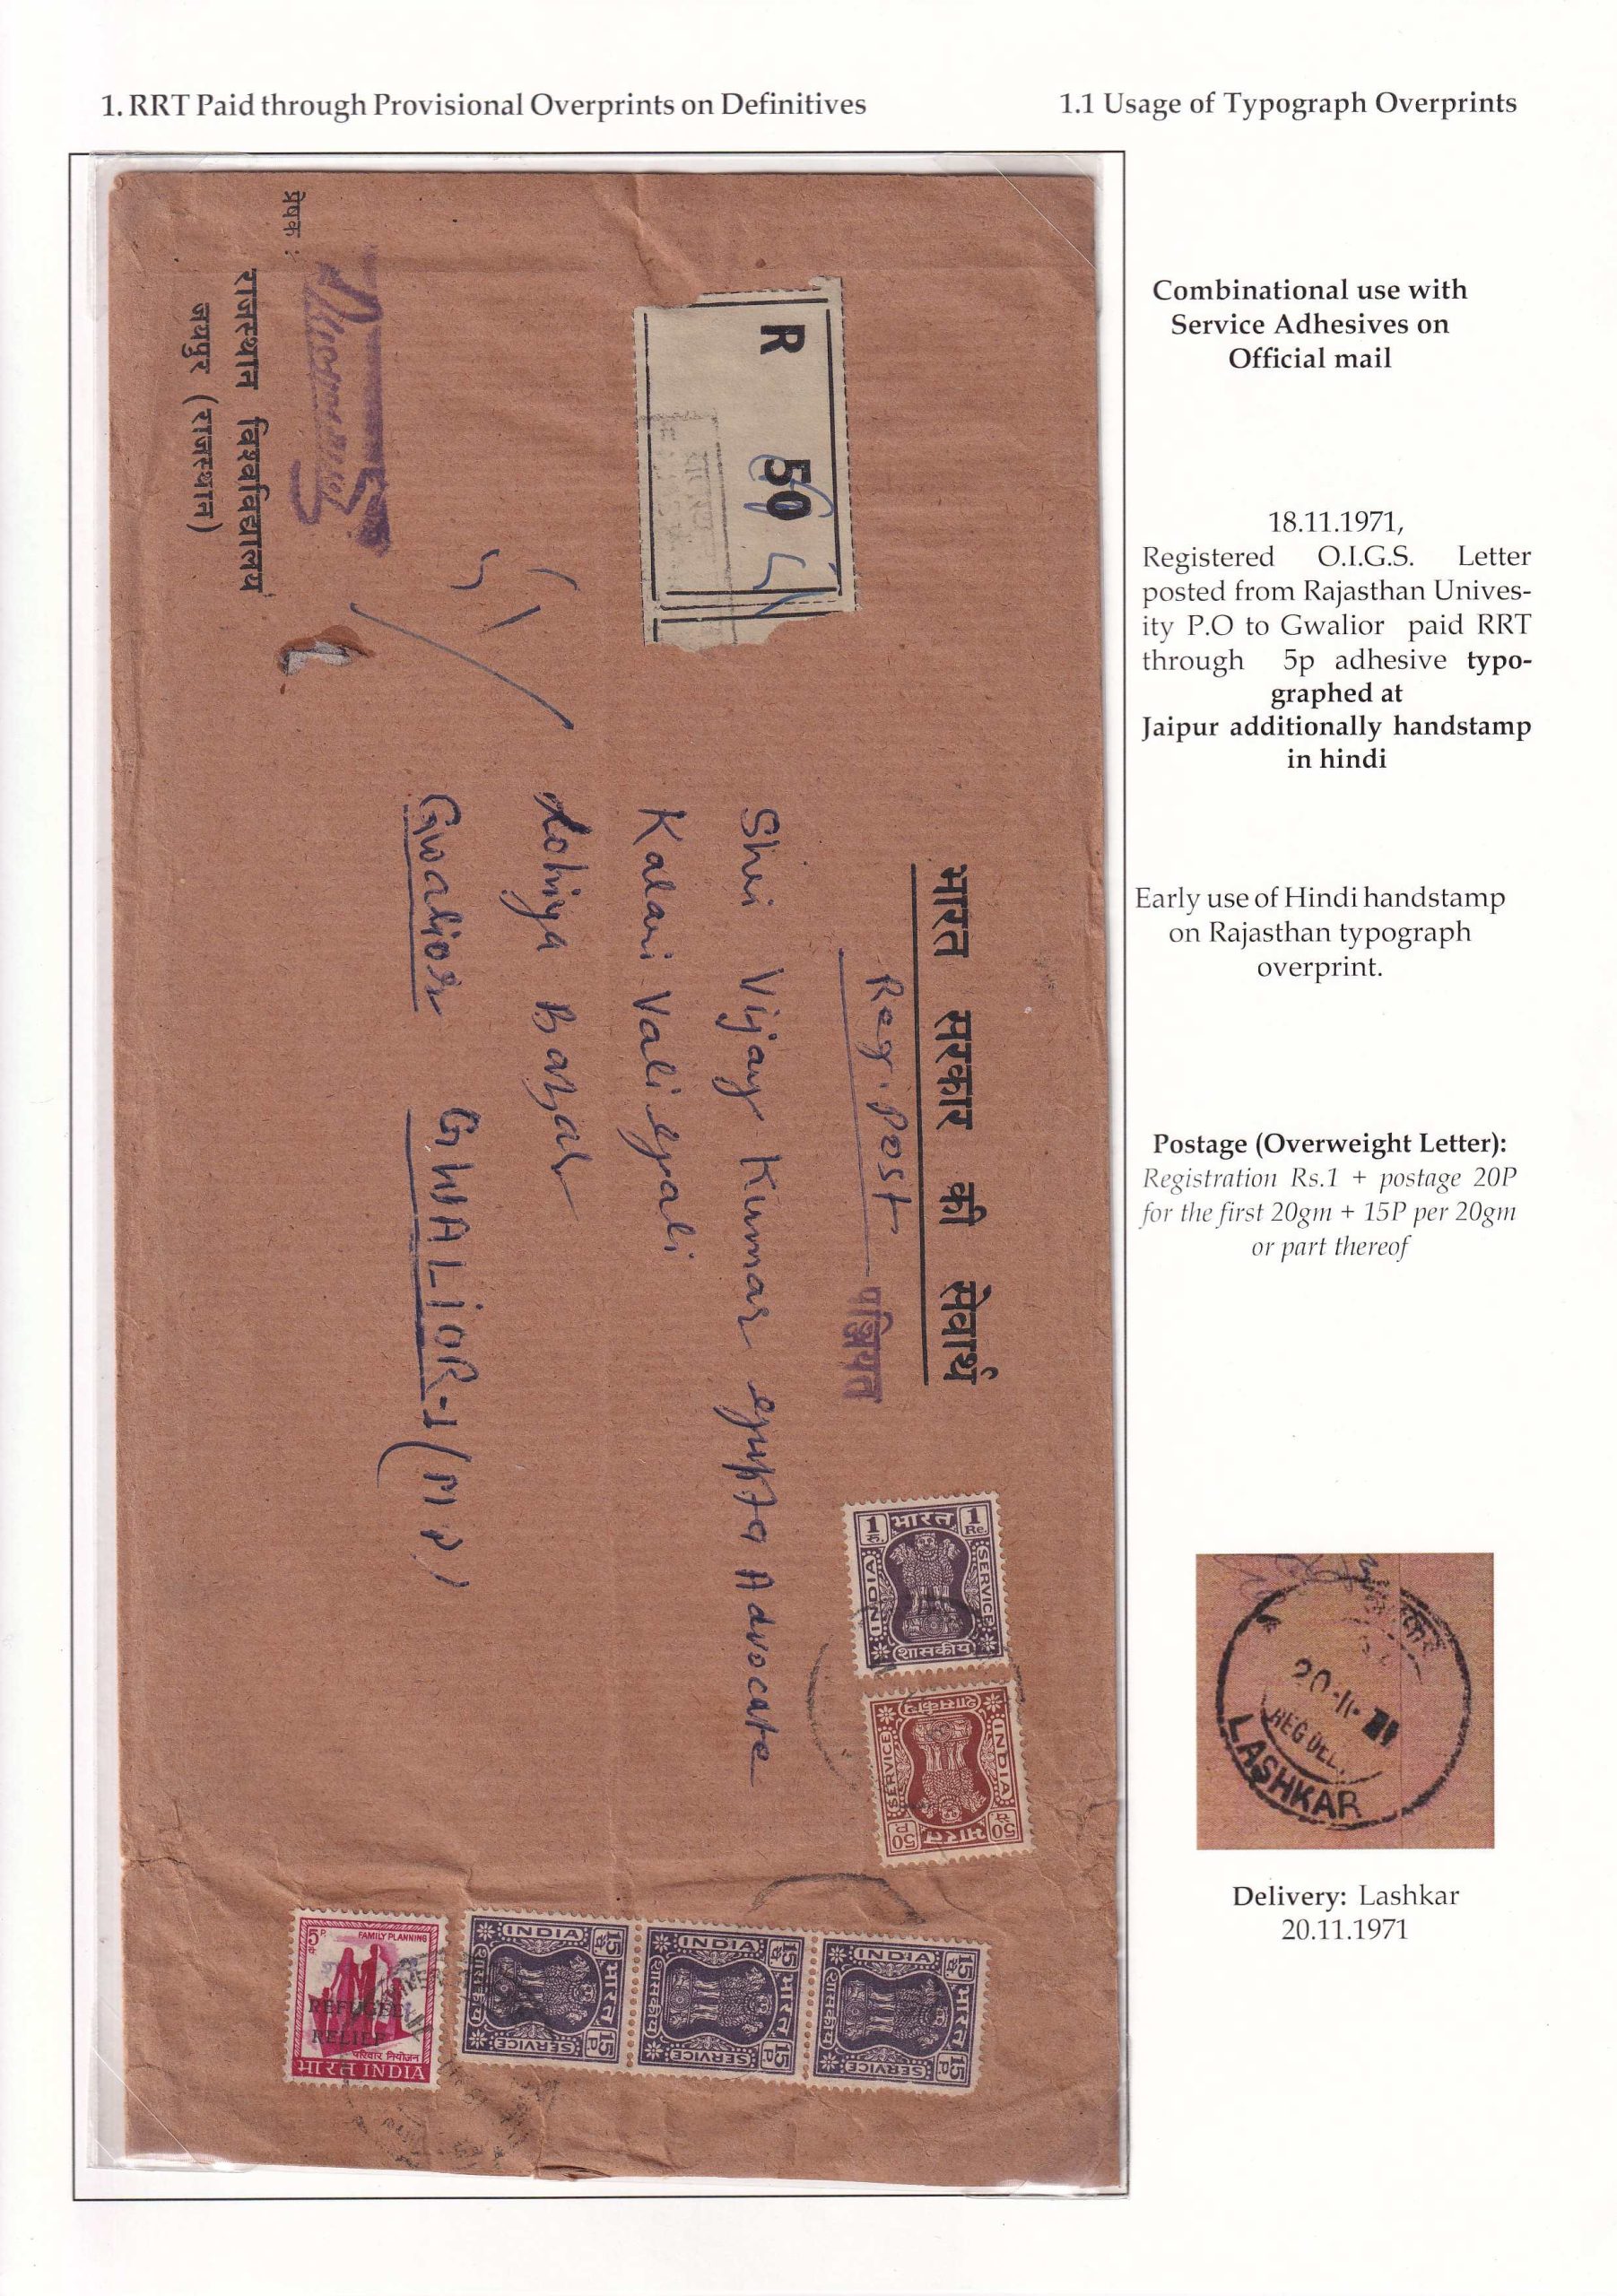 1. RRT Paid through Provisional Overprints on Definitives
1.1 Usage of Typograph Overprints
प्रेषक :
राजस्थान विश्वविद्यालय
जयपुर (राजस्थान)
R
50
भारत सरकार की सेवार्थ
Reg. Post
Shri Vijay Kumar Gupta Advocate
Kalari Vali Gali
Lohiya Bazar
Gwalior GWALIOR-1 (M P)
1 रु भारत 1 Re.
INDIA SERVICE
शासकीय
50 P भारत 50 पै
SERVICE INDIA
शासकीय
15 पै भारत 15 P
INDIA SERVICE
शासकीय
15 पै भारत 15 P
INDIA SERVICE
शासकीय
15 पै भारत 15 P
INDIA SERVICE
शासकीय
5 P पै FAMILY PLANNING
REFUGEE
RELIEF
परिवार नियोजन
भारत INDIA
Combinational use with
Service Adhesives on
Official mail
18.11.1971,
Registered O.I.G.S. Letter
posted from Rajasthan Unives-
ity P.O to Gwalior paid RRT
through 5p adhesive typo-
graphed at
Jaipur additionally handstamp
in hindi
Early use of Hindi handstamp
on Rajasthan typograph
overprint.
Postage (Overweight Letter):
Registration Rs.1 + postage 20P
for the first 20gm + 15P per 20gm
or part thereof
20-11-71
REG DEL
LASHKAR
Delivery: Lashkar
20.11.1971